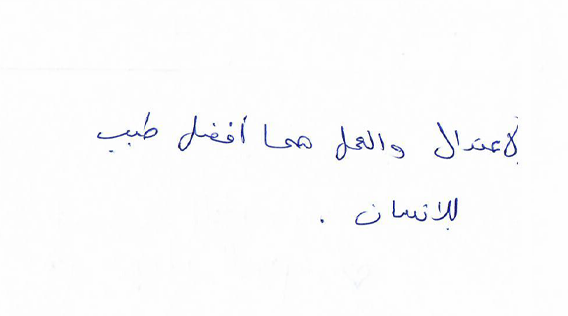 الاعتدال والعمل هما أفضل طبيب
للانسان .